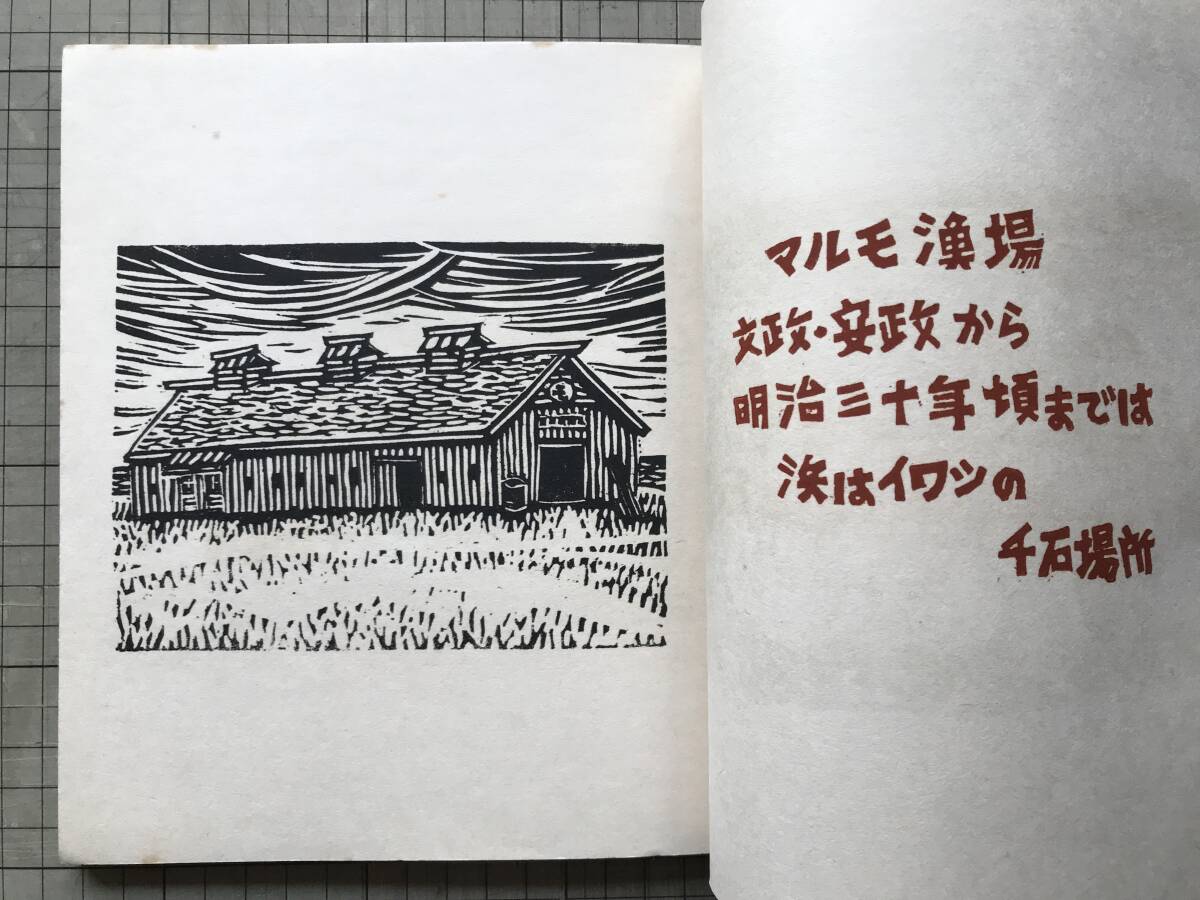 マルモ漁場
文政・安政から
明治三十年頃までは
浜はイワシの
千石場所